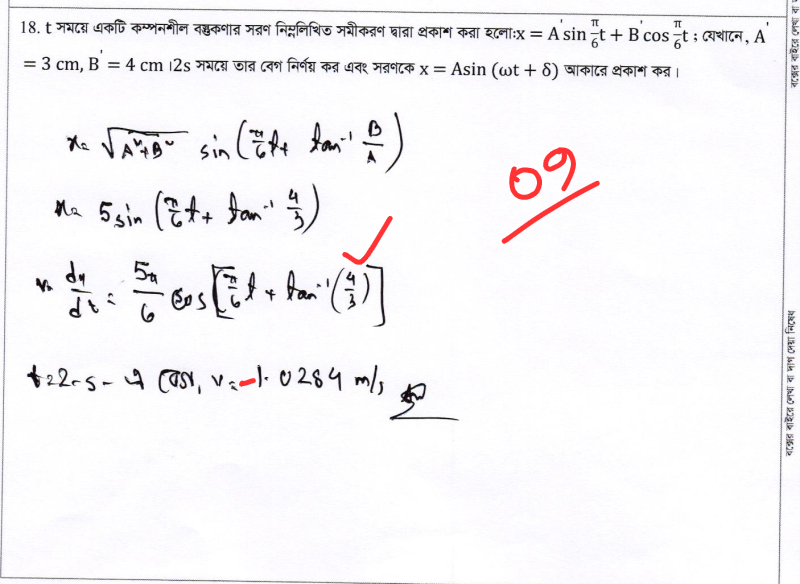 18. t সময়ে একটি কম্পনশীল বস্তুকণার সরণ নিম্নলিখিত সমীকরণ দ্বারা প্রকাশ করা হলো:x = A'sin π/6 t + B'cos π/6 t ; যেখানে, A'
= 3 cm, B' = 4 cm ।2s সময়ে তার বেগ নির্ণয় কর এবং সরণকে x = Asin (ωt + δ) আকারে প্রকাশ কর।
x = √(A² + B²) sin (π/6 t + tan⁻¹ B/A)
x = 5 sin (π/6 t + tan⁻¹ 4/3)
v = dx/dt = 5π/6 cos [π/6 t + tan⁻¹ (4/3)]
t = 2 s - এ বেগ, v = -1.0284 m/s
09
বক্সের বাইরে লেখা বা দাগ দেয়া নিষেধ